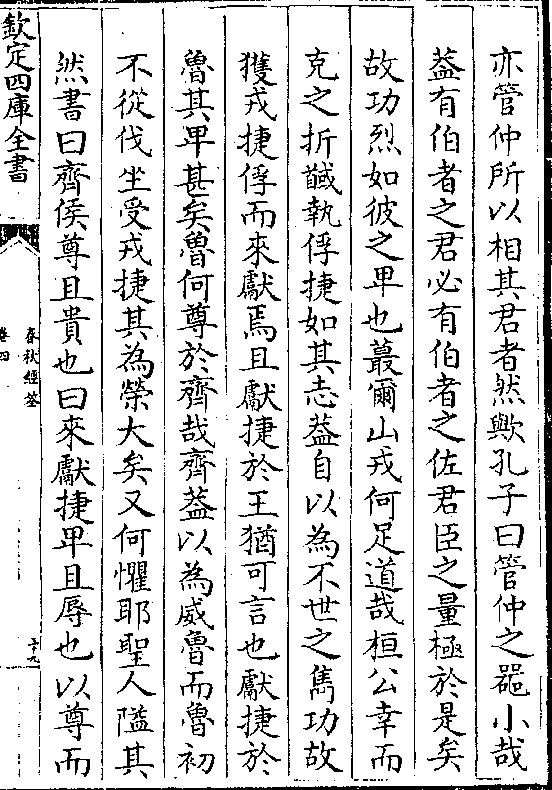 亦管仲所以相其君者然歟孔子曰管仲之器小哉
葢有伯者之君必有伯者之佐君臣之量極於是矣
故功烈如彼之卑也蕞爾山戎何足道哉桓公幸而
克之折馘執俘捷如其志葢自以為不世之雋功故
獲戎捷俘而來獻焉且獻捷於王猶可言也獻捷於
魯其卑甚矣魯何尊於齊哉齊葢以為威魯而魯初
不從伐坐受戎捷其為榮大矣又何懼耶聖人隘其
然書曰齊侯尊且貴也曰來獻捷卑且辱也以尊而
欽定四庫全書
春秋經筌
卷四
五十九